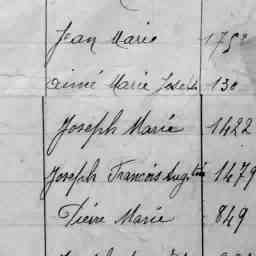 Jean Marie 1752
Aimé Marie Joseph 130
Joseph Marie 1422
Joseph Francois Augustin 1479
Pierre Marie 849